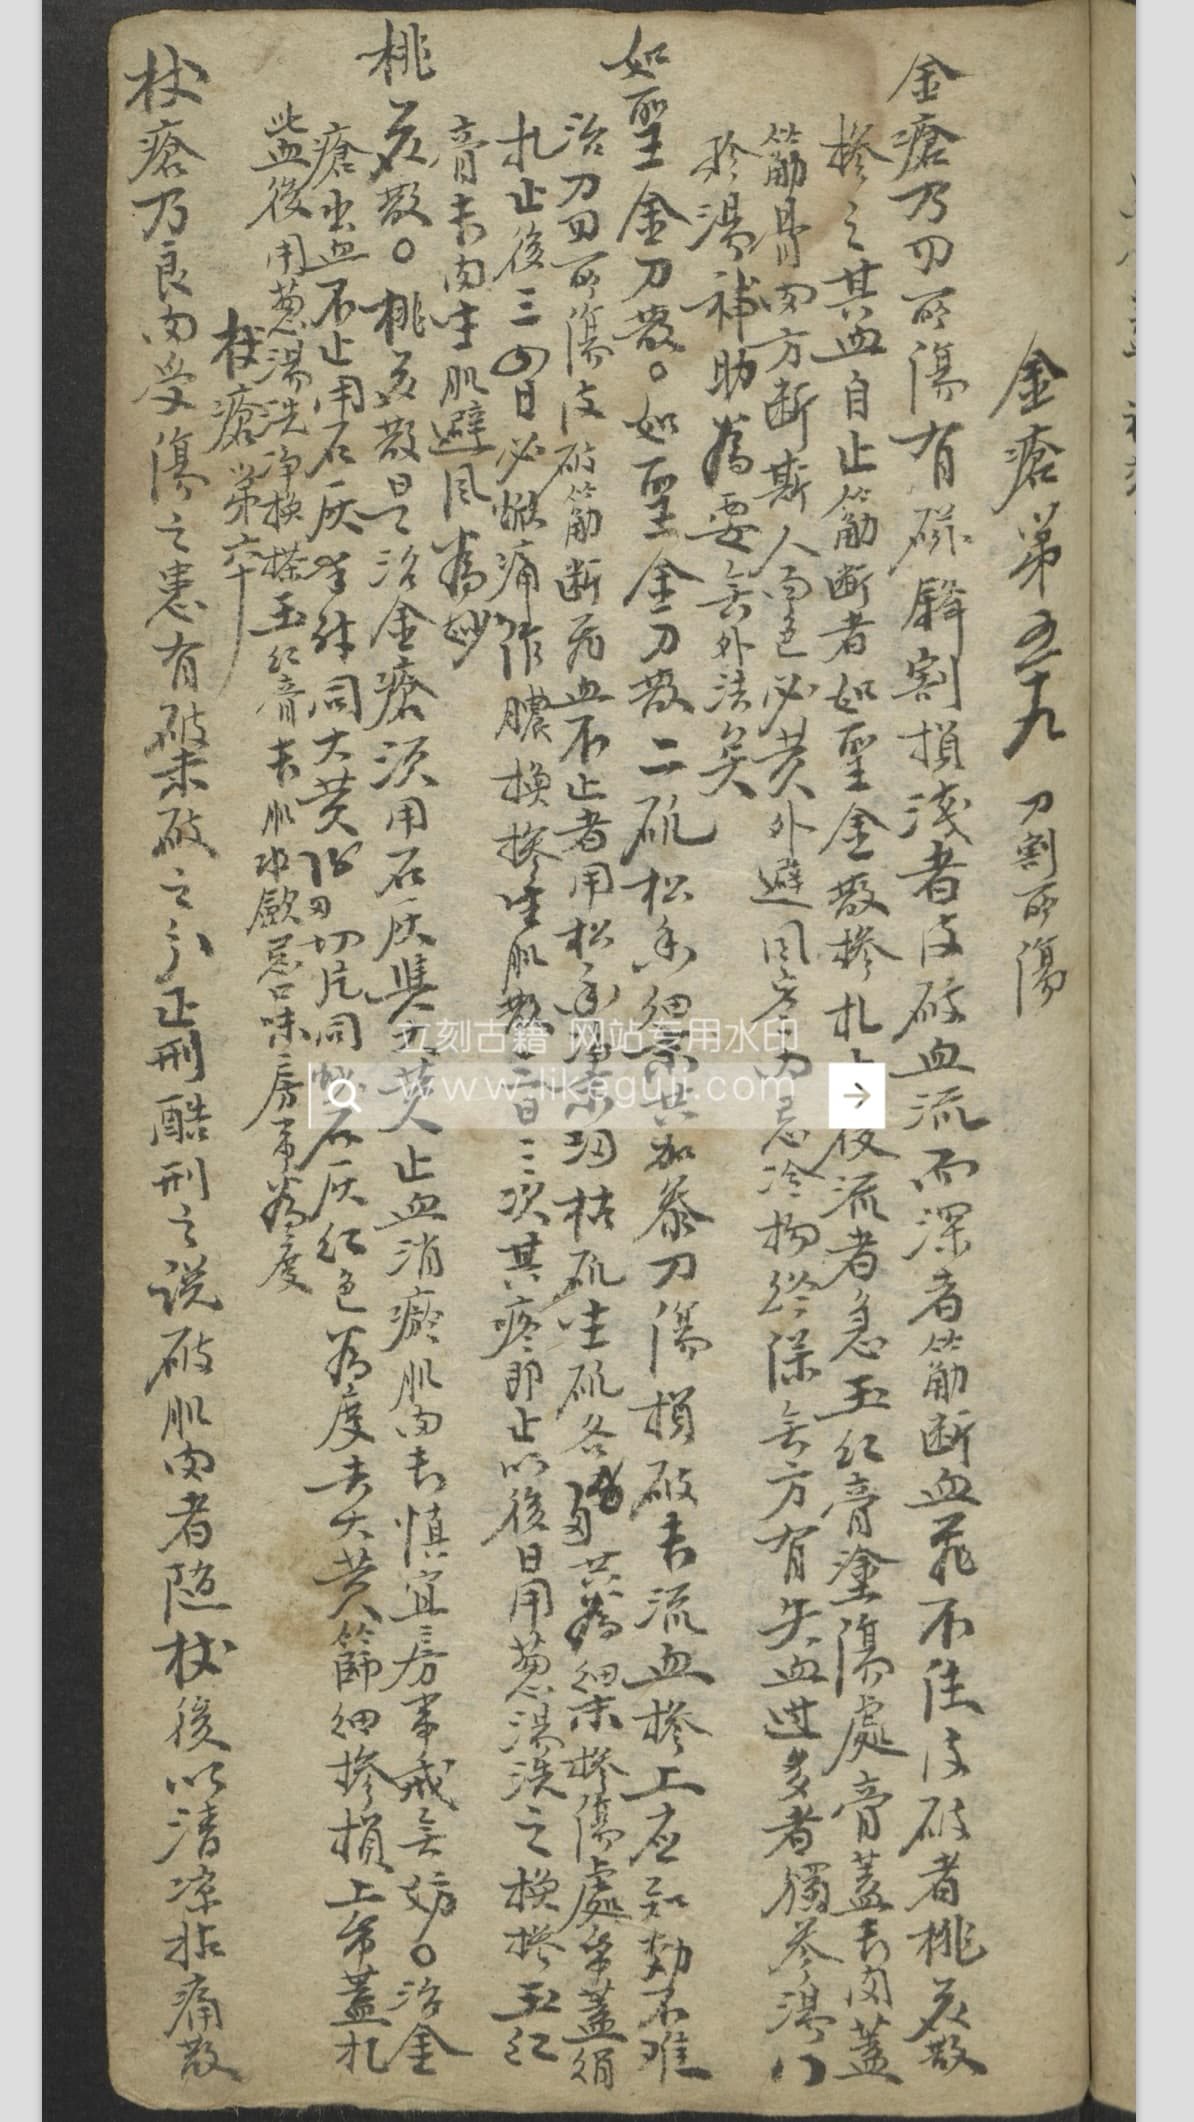 金瘡第五十九 刀割所傷
金瘡乃刃所傷有磁鋒割損淺者皮破血流而深者筋断血飛不住皮破者桃花散
摻之其血自止筋断者如聖金散摻扎止後流者急玉红膏塗傷處膏蓋長肉蓋
筋骨肉方断斯人面色必黄外避風寒内忌冷物终保無方有失血过多者獨參湯
於湯補助為要無外法矣
如聖金刀散。如聖金刀散二矾松香細末共加參刀傷損破長流血摻上应知効不难
治刀刃所傷皮破筋断飛血不止者用松香净末枯矾生矾各共為細末摻傷處帋蓋絹
扎止後三四日必焮痛作膿換摻生肌散二日三次其疼即止以後日用葱湯洗之換搽玉红
膏長肉生肌避風為妙
桃花散。桃花散是治金瘡须用石灰與大黄人止血消瘀肌肉長慎宜房事戒無妨。治金
瘡出血不止用石灰半升同大黄切片同炒石灰红色為度去大黄篩細摻損上帋蓋扎
血後用葱湯洗净換搽玉红膏長肌水歛忌口味房事為度
杖瘡第六十
杖瘡乃良肉受傷之患有破未破之分正刑酷刑之说破肌肉者随杖後以清凉拈痛散
立刻古籍 网站专用水印
www.likeguji.com